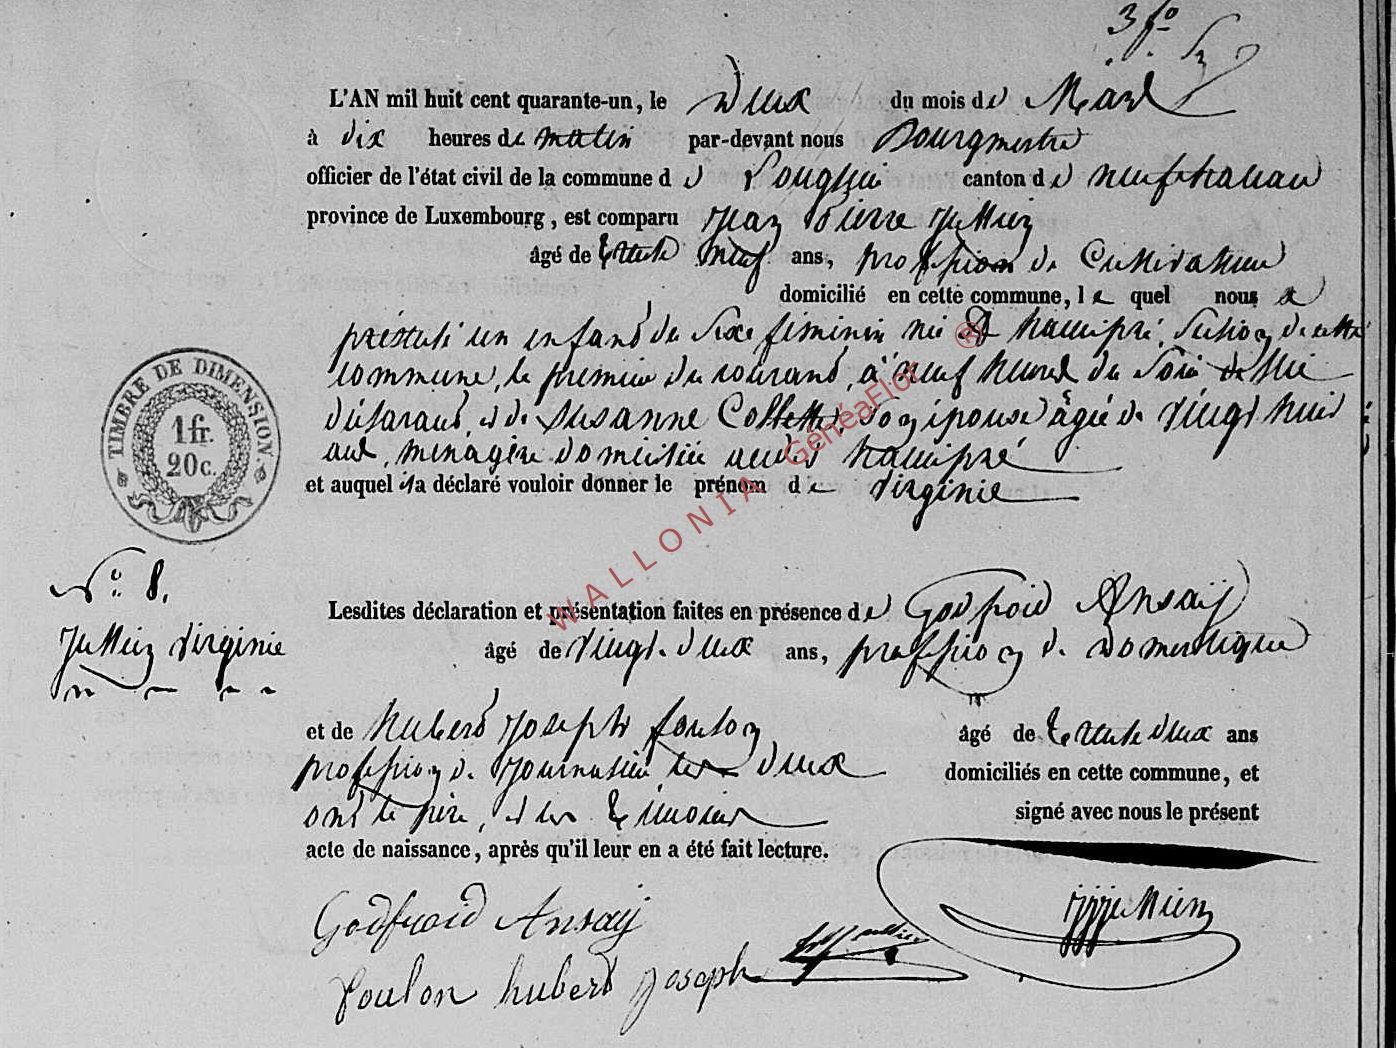 3 fo
L'AN mil huit cent quarante-un, le Deux du mois de Mars
à dix heures de matin par-devant nous Bourgmestre
officier de l'état civil de la commune d e canton d e neufchateau
province de Luxembourg, est comparu Jean Pierre
âgé de trente neuf ans, profession de Cultivateur
domicilié en cette commune, le quel nous a
présenté un enfant du sexe féminin né à hamipré, section de cette
commune, le premier du courant, à neuf heures du soir de lui
déclarant, et de Susanne Collette, son épouse âgée de vingt huit
ans, ménagère domiciliée audit hamipré
et auquel il a déclaré vouloir donner le prénom de Virginie
TIMBRE DE DIMENSION
1 fr.
20 c.
WALLONIA GénéaFlor ®
No. 8.
Virginie
Lesdites déclaration et présentation faites en présence de Godfroid Ansaij
âgé de vingt-deux ans, profession de domestique
et de hubert Joseph foulon âgé de trente deux ans
profession de Journalier les deux domiciliés en cette commune, et
ont le père, et les témoins signé avec nous le présent
acte de naissance, après qu'il leur en a été fait lecture.
Godfroid Ansaij
foulon hubert joseph